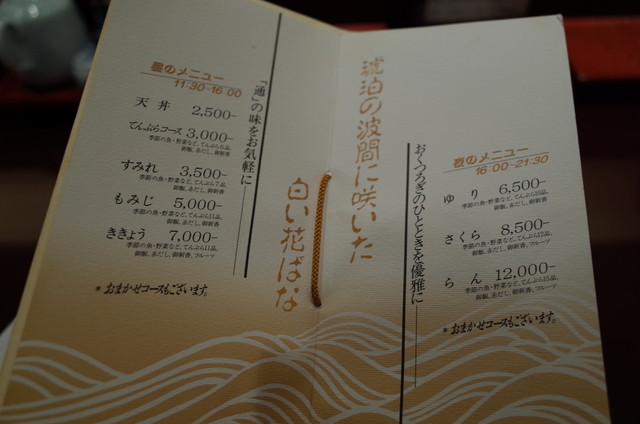 昼のメニュー
11:30-16:00
天丼 2,500-
てんぷらコース 3,000-
季節の魚・野菜など、てんぷら6品、
御飯、赤だし、御新香
すみれ 3,500-
季節の魚・野菜など、てんぷら7品、
御飯、赤だし、御新香
もみじ 5,000-
季節の魚・野菜など、てんぷら11品、
御飯、赤だし、御新香
ききょう 7,000-
季節の魚・野菜など、てんぷら11品、
御飯、赤だし、御新香、フルーツ
*おまかせコースもございます。
「通」の味をお気軽に
琥珀の波間に咲いた
白い花ばな
おくつろぎのひとときを優雅に
夜のメニュー
16:00-21:30
ゆり 6,500-
季節の魚・野菜など、てんぷら10品、
御飯、赤だし、御新香
さくら 8,500-
季節の魚・野菜など、てんぷら12品、
御飯、赤だし、御新香、フルーツ
らん 12,000-
季節の魚・野菜など、てんぷら15品、
御飯、赤だし、御新香、フルーツ
*おまかせコースもございます。